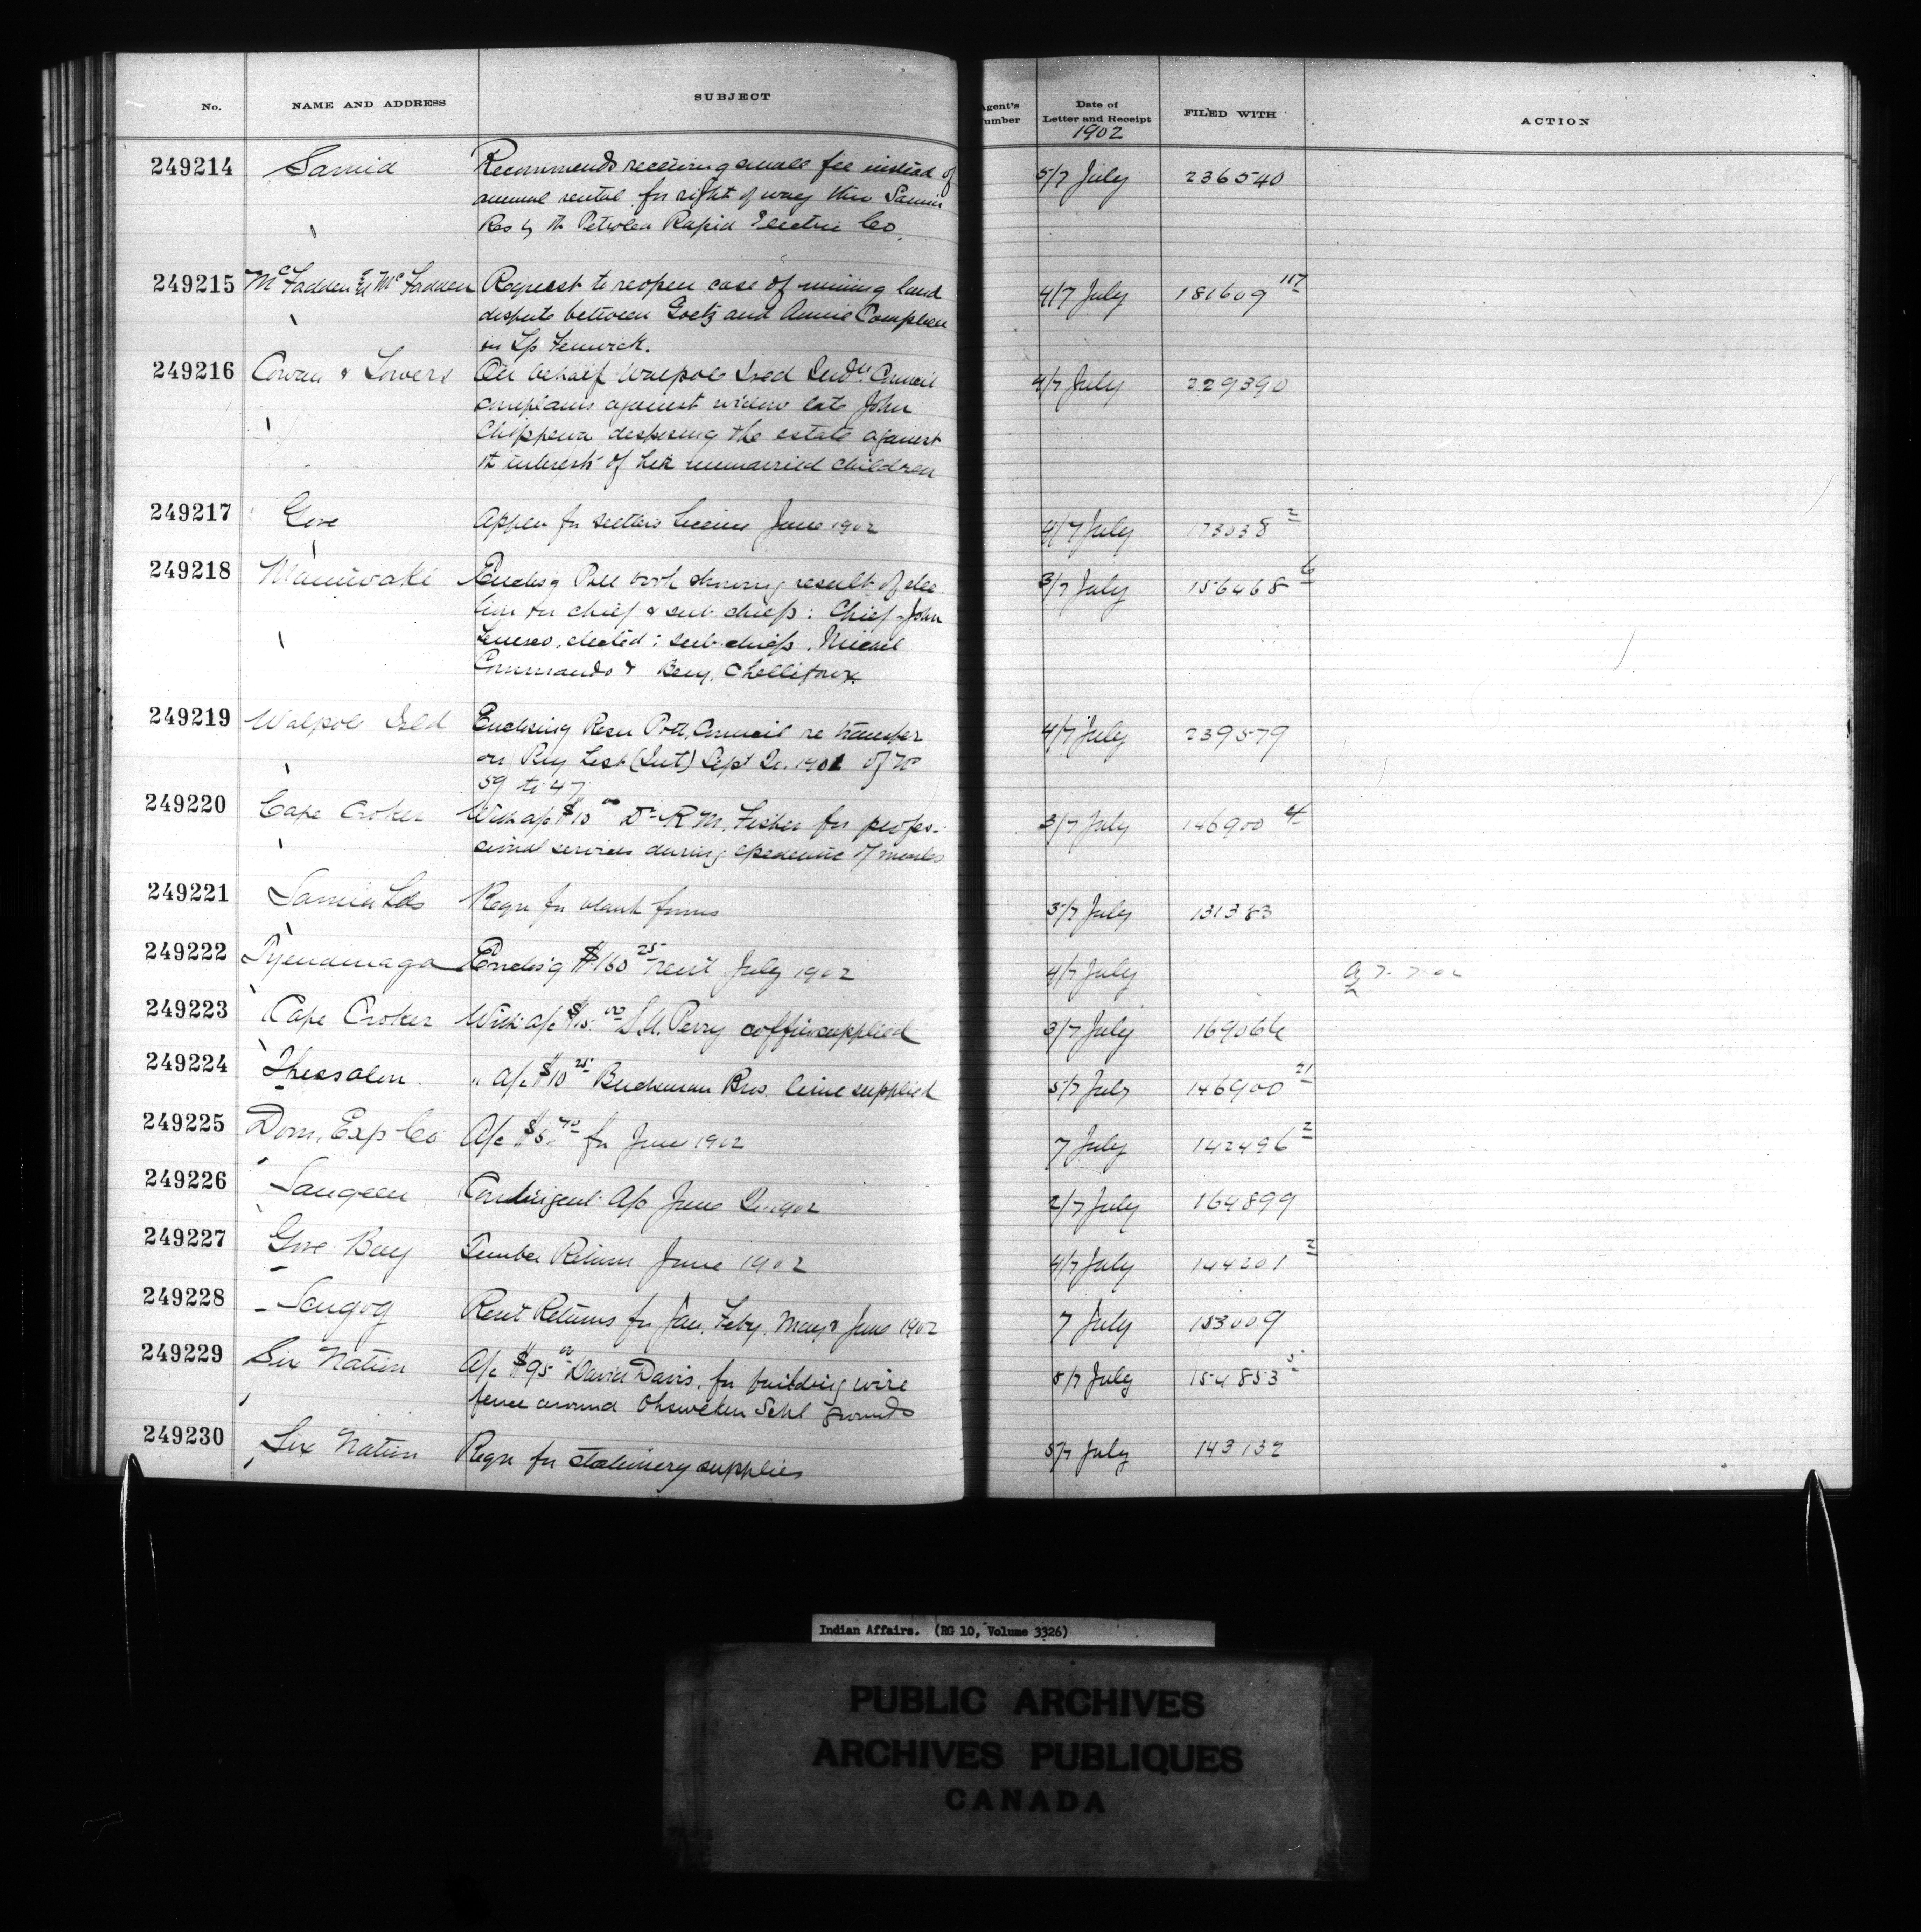 No. NAME AND ADDRESS SUBJECT Agent's Number Date of Letter and Receipt FILED WITH ACTION
1902
249214 Sarnia Recommends receiving small fee instead of 5/7 July 236540
annual rental for right of way thro Sarnia
Res by th Petrolea Rapid Electric Co.
249215 McFadden & McFadden Request to reopen case of mining land 4/7 July 181609 117
dispute between Goetz and Annie Campbell
in Tp Fenwick.
249216 Cowan & Towers On behalf Walpole Isld Indn Council 4/7 July 229390
complains against widow late John
Chippewa disposing the estate against
th interests of her unmarried children
249217 Gore Appln for settlers license June 1902 4/7 July 173038 2
249218 Maniwaki Enclos'g Poll book showing result of elec- 3/7 July 156468 6
tion for chief & sub chiefs: Chief John
elected: sub-chiefs, Michel
Commando & Benj.
249219 Walpole Isld Enclosing Resn Pott. Council re transfer 4/7 July 239579
on Pay List (Int) Sept Qr. 1901 of No
59 to 47
249220 Cape Croker With a/c $10 00 Dr R M. Fisher for profes- 3/7 July 146900 4
sional services during epedemic of measles
249221 Sarnia Lds Reqn for blank forms 3/7 July 131383
249222 Tyendinaga Enclos'g $160 25 rent July 1902 4/7 July 7-7-02
249223 Cape Croker With a/c $15 00 S.A. Perry coffin supplied 3/7 July 169066
249224 Thessalon " a/c $10 25 Buchanan Bros. lime supplied 5/7 July 146900 21
249225 Dom. Exp Co A/c $5 70 for June 1902 7 July 142496 2
249226 Saugeen Contingent A/c June Qr 1902 2/7 July 164899
249227 Gore Bay Timber Return June 1902 4/7 July 144201 2
249228 Scugog Rent Returns for Jan, Feby, May & June 1902 7 July 153009
249229 Six Nation A/c $95 00 David Davis, for building wire 5/7 July 154853 5
fence around Ohsweken Schl grounds
249230 Six Nation Reqn for stationery supplies 5/7 July 143132
Indian Affairs. (RG 10, Volume 3326)
PUBLIC ARCHIVES
ARCHIVES PUBLIQUES
CANADA